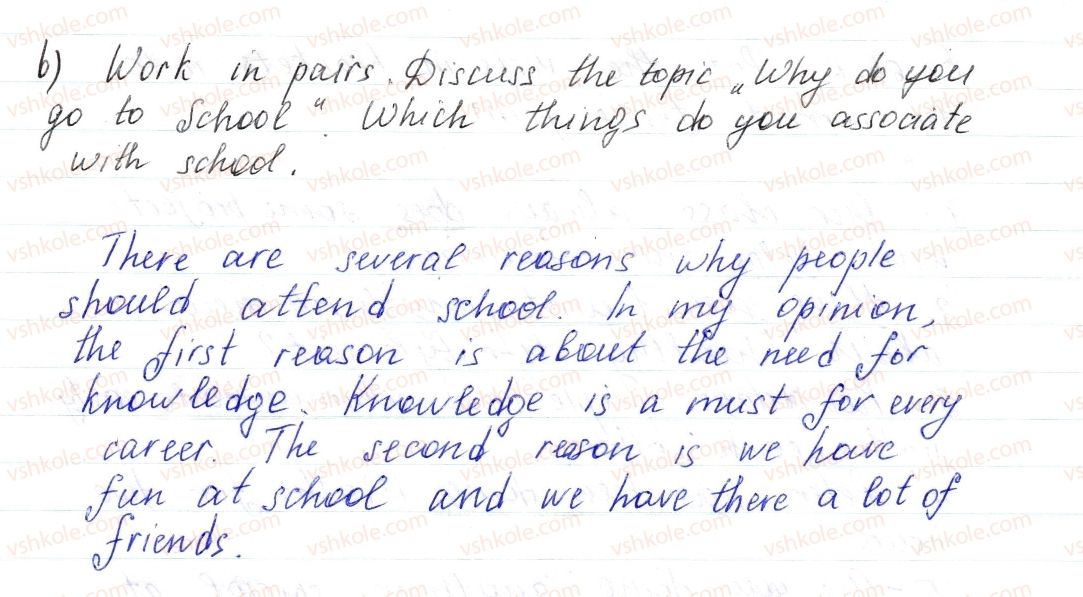 b) Work in pairs. Discuss the topic „Why do you
go to School“. Which things do you associate
with school.
There are several reasons why people
should attend school. In my opinion,
the first reason is about the need for
knowledge. Knowledge is a must for every
career. The second reason is we have
fun at school and we have there a lot of
friends.